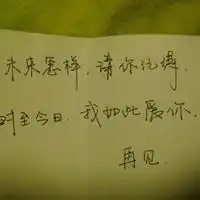 未来怎样,请你记得.
时至今日.我如此爱你.
再见.